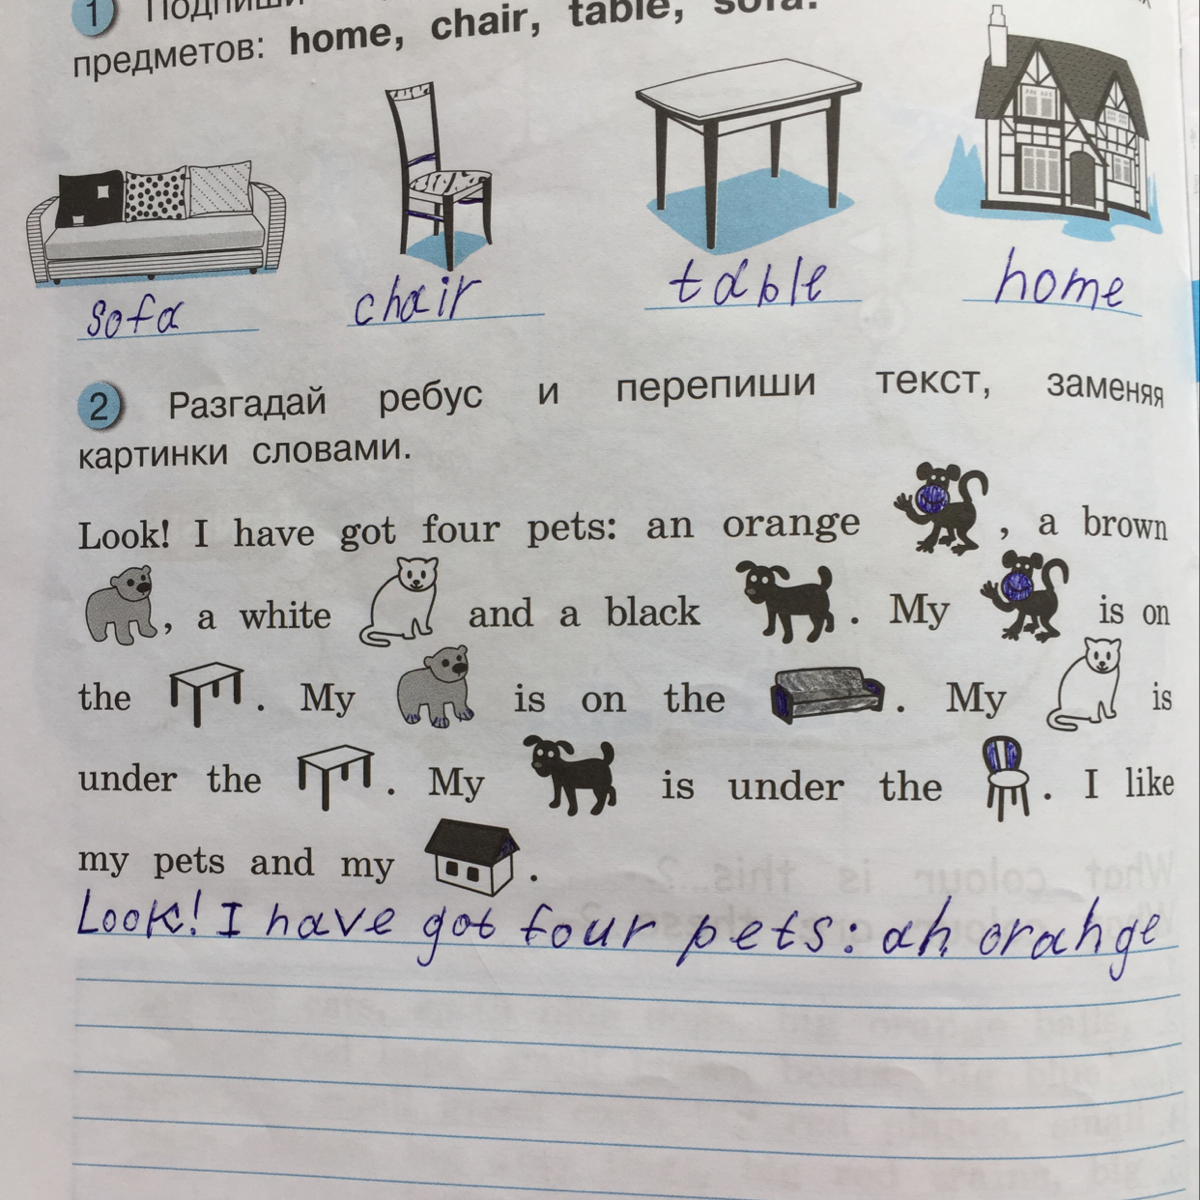 1 Подпиши
предметов: home, chair, table, sofa.
sofa chair table home
2 Разгадай ребус и перепиши текст, заменяя
картинки словами.
Look! I have got four pets: an orange , a brown
, a white and a black . My is on
the . My is on the . My is
under the . My is under the . I like
my pets and my .
Look! I have got four pets: an orange